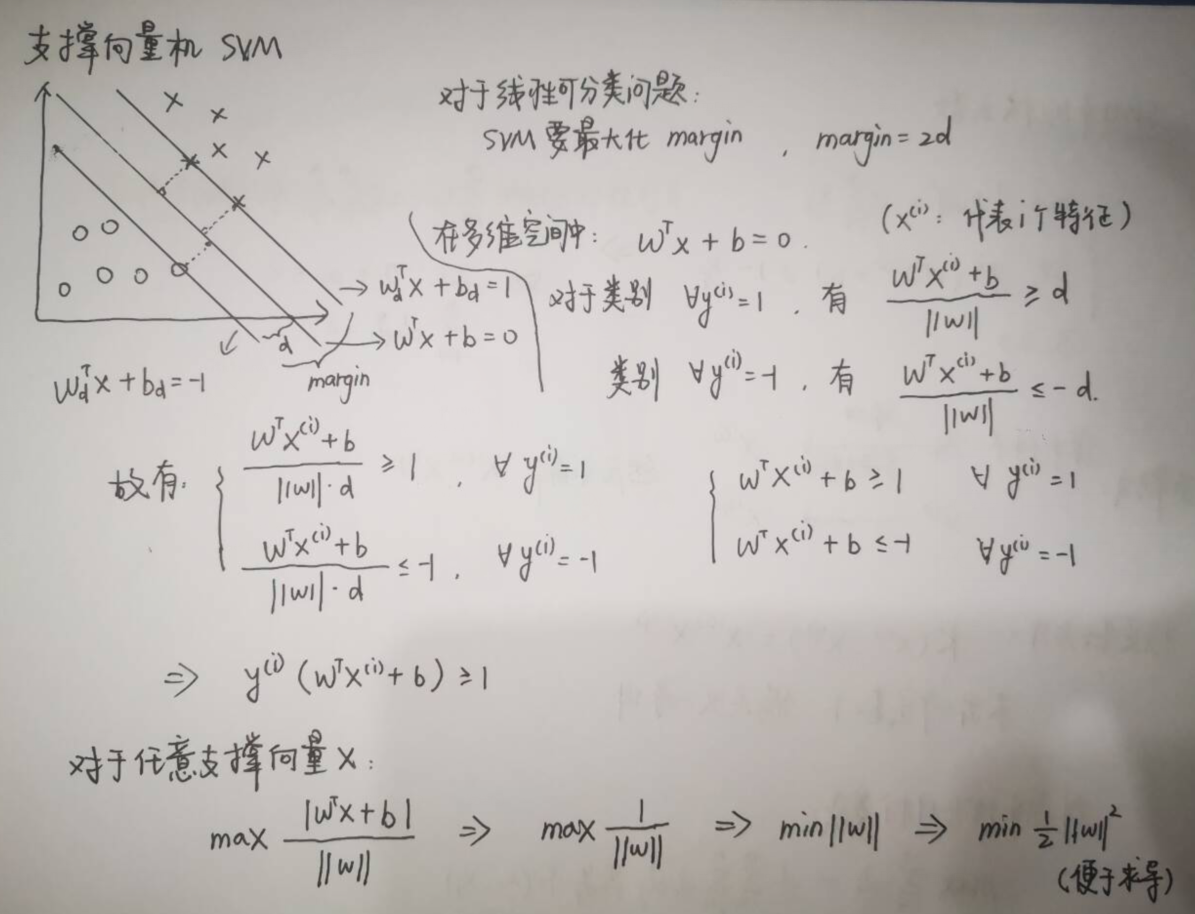 支撑向量机 SVM
对于线性可分类问题:
SVM 要最大化 margin , margin = 2d
在多维空间中: wᵀx + b = 0. (x⁽ⁱ⁾: 代表i个特征)
w_dᵀx + b_d = 1
wᵀx + b = 0
w_dᵀx + b_d = -1
d
margin
对于类别 ∀y⁽ⁱ⁾=1 , 有 (wᵀx⁽ⁱ⁾+b)/||w|| ≥ d
类别 ∀y⁽ⁱ⁾=-1 , 有 (wᵀx⁽ⁱ⁾+b)/||w|| ≤ -d.
故有: { (wᵀx⁽ⁱ⁾+b)/(||w||·d) ≥ 1 , ∀ y⁽ⁱ⁾=1
(wᵀx⁽ⁱ⁾+b)/(||w||·d) ≤ -1 , ∀ y⁽ⁱ⁾=-1
{ wᵀx⁽ⁱ⁾ + b ≥ 1 ∀ y⁽ⁱ⁾=1
wᵀx⁽ⁱ⁾ + b ≤ -1 ∀ y⁽ⁱ⁾=-1
⇒ y⁽ⁱ⁾ (wᵀx⁽ⁱ⁾+b) ≥ 1
对于任意支撑向量 x:
max |wᵀx+b|/||w|| ⇒ max 1/||w|| ⇒ min ||w|| ⇒ min ½||w||²
(便于求导)